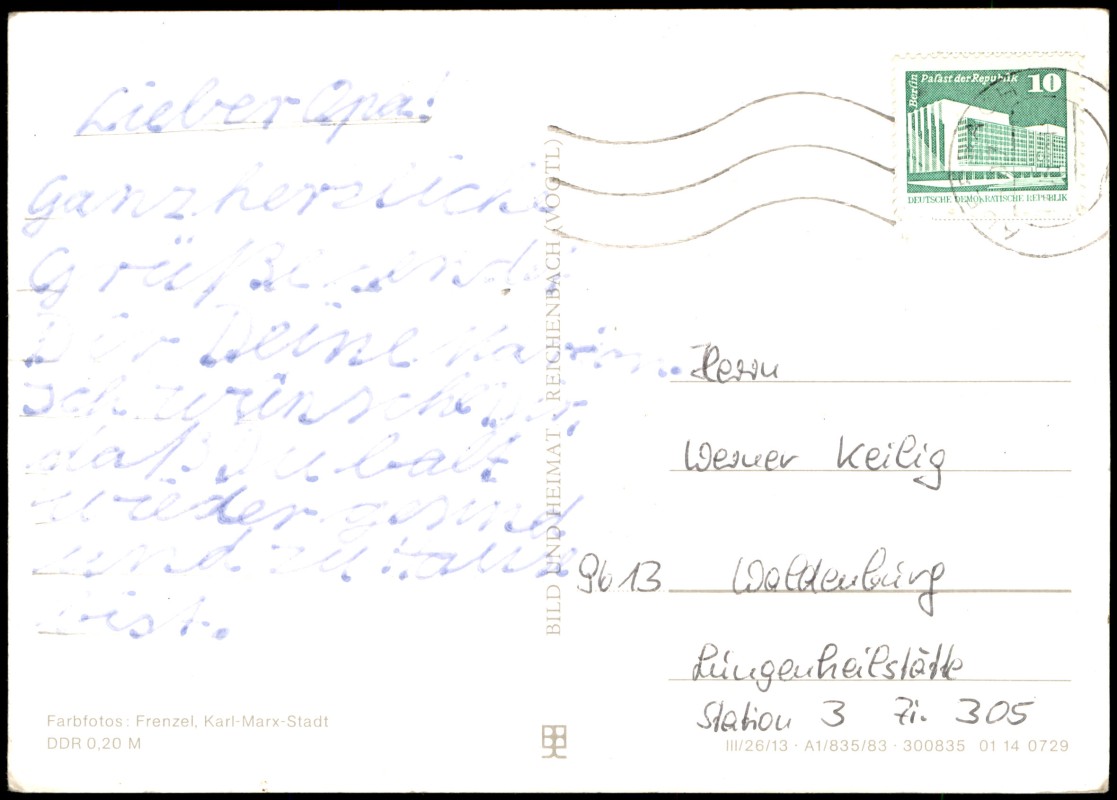 Lieber Opa!
ganz herzliche
Grüße sendet
Dir Deine Karin.
Ich wünsche Dir,
daß Du balt
wieder gesund
und zu Hause
bist.
Farbfotos: Frenzel, Karl-Marx-Stadt
DDR 0,20 M
BILD UND HEIMAT · REICHENBACH (VOGTL)
Berlin Palast der Republik 10
DEUTSCHE DEMOKRATISCHE REPUBLIK
Herrn
Werner Keilig
9613 Waldenburg
Lungenheilstätte
Station 3 Zi. 305
III/26/13 · A1/835/83 · 300835 01 14 0729